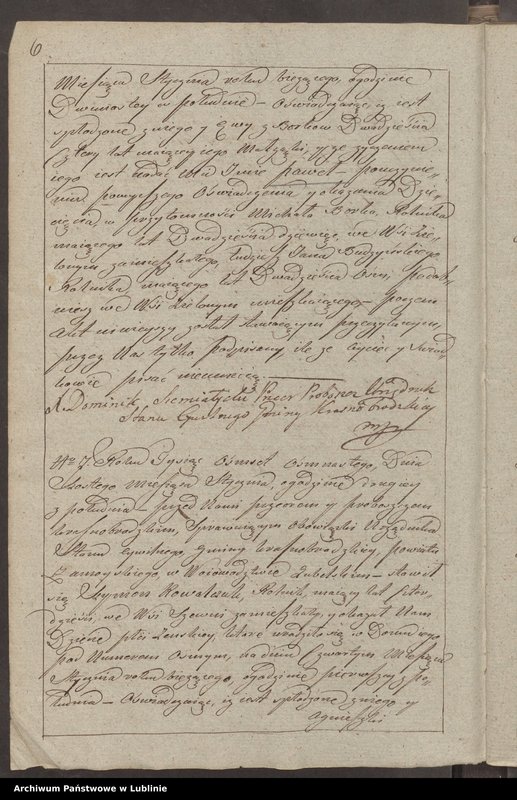 6
Miesiąca Stycznia roku bieżącego, o godzinie
Dwunastey w południe – Oświadczaiąc, iż iest
spłodzone z niego y Ewy z Borków Dwadzieścia
Cztery lat maiącey iego Małżonki, y że życzeniem
iego iest nadać mu Imie Paweł – po uczynie-
niu powyższego Oświadczenia y okazaniu Dzie-
cięcia, w przytomności Michała Borka, Rolnika
maiącego lat Dwadzieścia dziewięć, we Wsi Zie-
lonym zamieszkałego, tudzież Jana Budzyńskiego
Rolnika maiącego lat Dwadzieścia Osm, podob-
nież we Wsi Zielonym mieszkaiącego – poczem
Akt ninieyszy został stawaiącym przeczytanym,
przez Nas tylko podpisany ile że Oyciec y Świad-
kowie pisać nieumieią.
X. Dominik Siemiątycki Przeor Proboszcz Urzędnik
Stanu Cywilnego Gminy Krasnobrodzkiey
mp
Nro 7. Roku Tysiąc Ośmset Ośmnastego, Dnia
Szóstego Miesiąca Stycznia, o godzinie drugiey
z południa – przed Nami przeorem y proboszczem
krasnobrodzkim, Sprawuiącym obowiązki Urzędnika
Stanu cywilnego gminy krasnobrodzkiey, powiatu
Zamoyskiego, w Woiewodztwie Lubelskim – stawił
się Szymon Kowalczuk, Rolnik, maiący lat
we Wsi Szewni zamieszkały, y okazał Nam
Dziecie płci żeńskiey, które urodziło się w Domu iego
pod Numerem Osmym, na dniu Czwartym Miesiąca
Stycznia roku bieżącego, o godzinie pierwszey z po-
łudnia – Oświadczaiąc, iż iest spłodzone z niego y
Agnieszki
Archiwum Państwowe w Lublinie